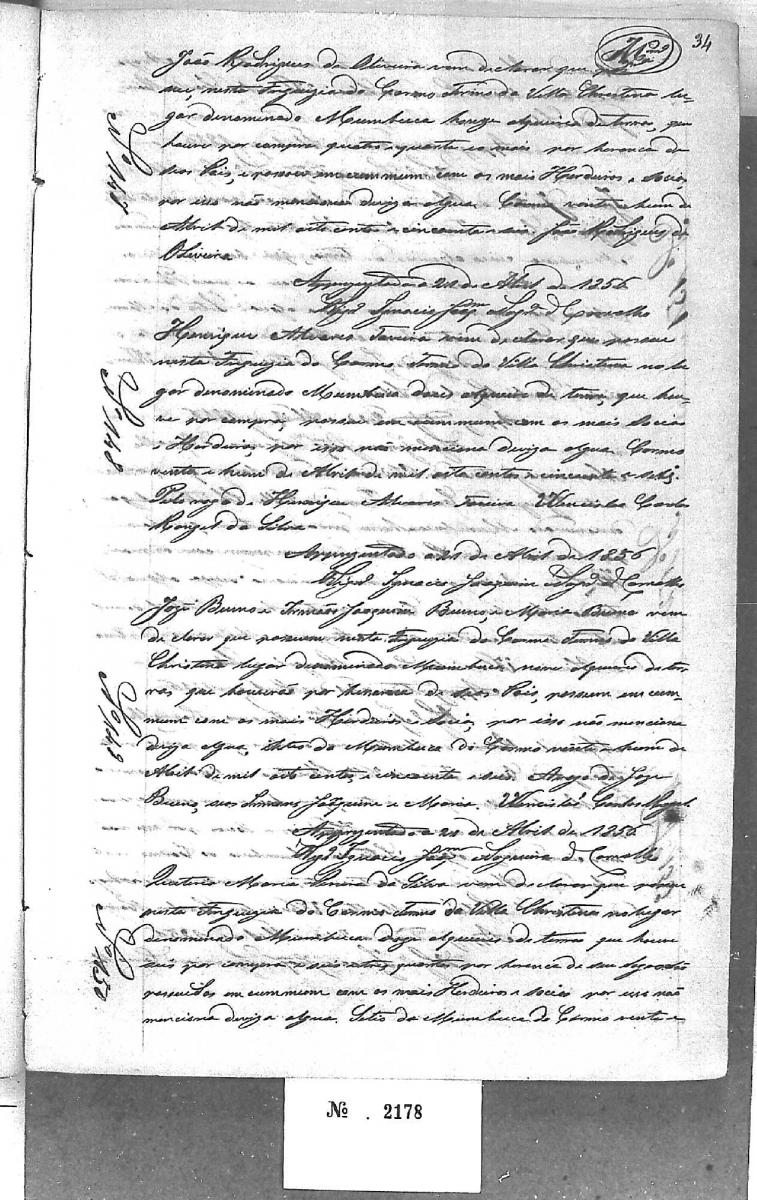 34
João Rodrigues de Oliveira vem declarar que
sui, nesta Freguezia do Carmo Termo da Villa Christina lu-
gar denominado Mumbuca alqueires de terras, que
houve por compra quatro, e quarta e o mais por herança de
seus Pais, e possue em cummum com os mais Herdeiros e Socios,
por isso não menciona diviza algua. Carmo vinte e hum de
Abril de mil oito centos e cincoenta e seis. João Rodrigues de
Oliveira
Nº 147
Aprezentado a 21 de Abril de 1856
Vigº Ignacio Joaqm Nogrª de Carvalho
Henrique Alvares Pereira vem declarar que possue
nesta Freguezia do Carmo Termo da Villa Christina no lu-
gar denominado Mumbuca alqueires de terras, que hou-
ve por compra, possue em cummum com os mais Socios
e Herdeiros, por isso não menciona diviza algua. Carmo
vinte e hum de Abril de mil oito centos e cincoenta e seis.
Pelo rogo de Henrique Alvares Pereira Wencislao Carlos
Rangel da Silva
Nº 148
Aprezentado a 21 de Abril de 1856
Vigº Ignacio Joaquim Nogrª de Carvalho
Joze Bueno e Irmãos Joaquim Bueno, e Maria Bueno vem
declarar que possuem nesta Freguezia do Carmo Termo da Villa
Christina lugar denominado Mumbuca nove alqueires de ter-
ras que houverão por herança de seus Pais, possuem em cum-
mum com os mais Herdeiros e Socios, por isso não menciona
diviza algua, Sitio da Mumbuca do Carmo vinte e hum de
Abril de mil oito centos e cincoenta e seis. Arogo de Joze
Bueno, seus Irmaons Joaquim e Maria. Wencislao Carlos Rangel
Nº 149
Aprezentado a 21 de Abril de 1856
Vigº Ignacio Joaqm Nogueira de Carvalho
Maria Pereira da Silva vem declarar que possue
nesta Freguezia do Carmo Termo da Villa Christina no lugar
denominado Mumbuca doze alqueires de terras que houve
seis por compra e seis por herança de seu
possuidos em cummum com os mais Herdeiros e Socios por isso não
menciona diviza algua. Sitio da Mumbuca do Carmo vinte e
Nº 150
Nº . 2178